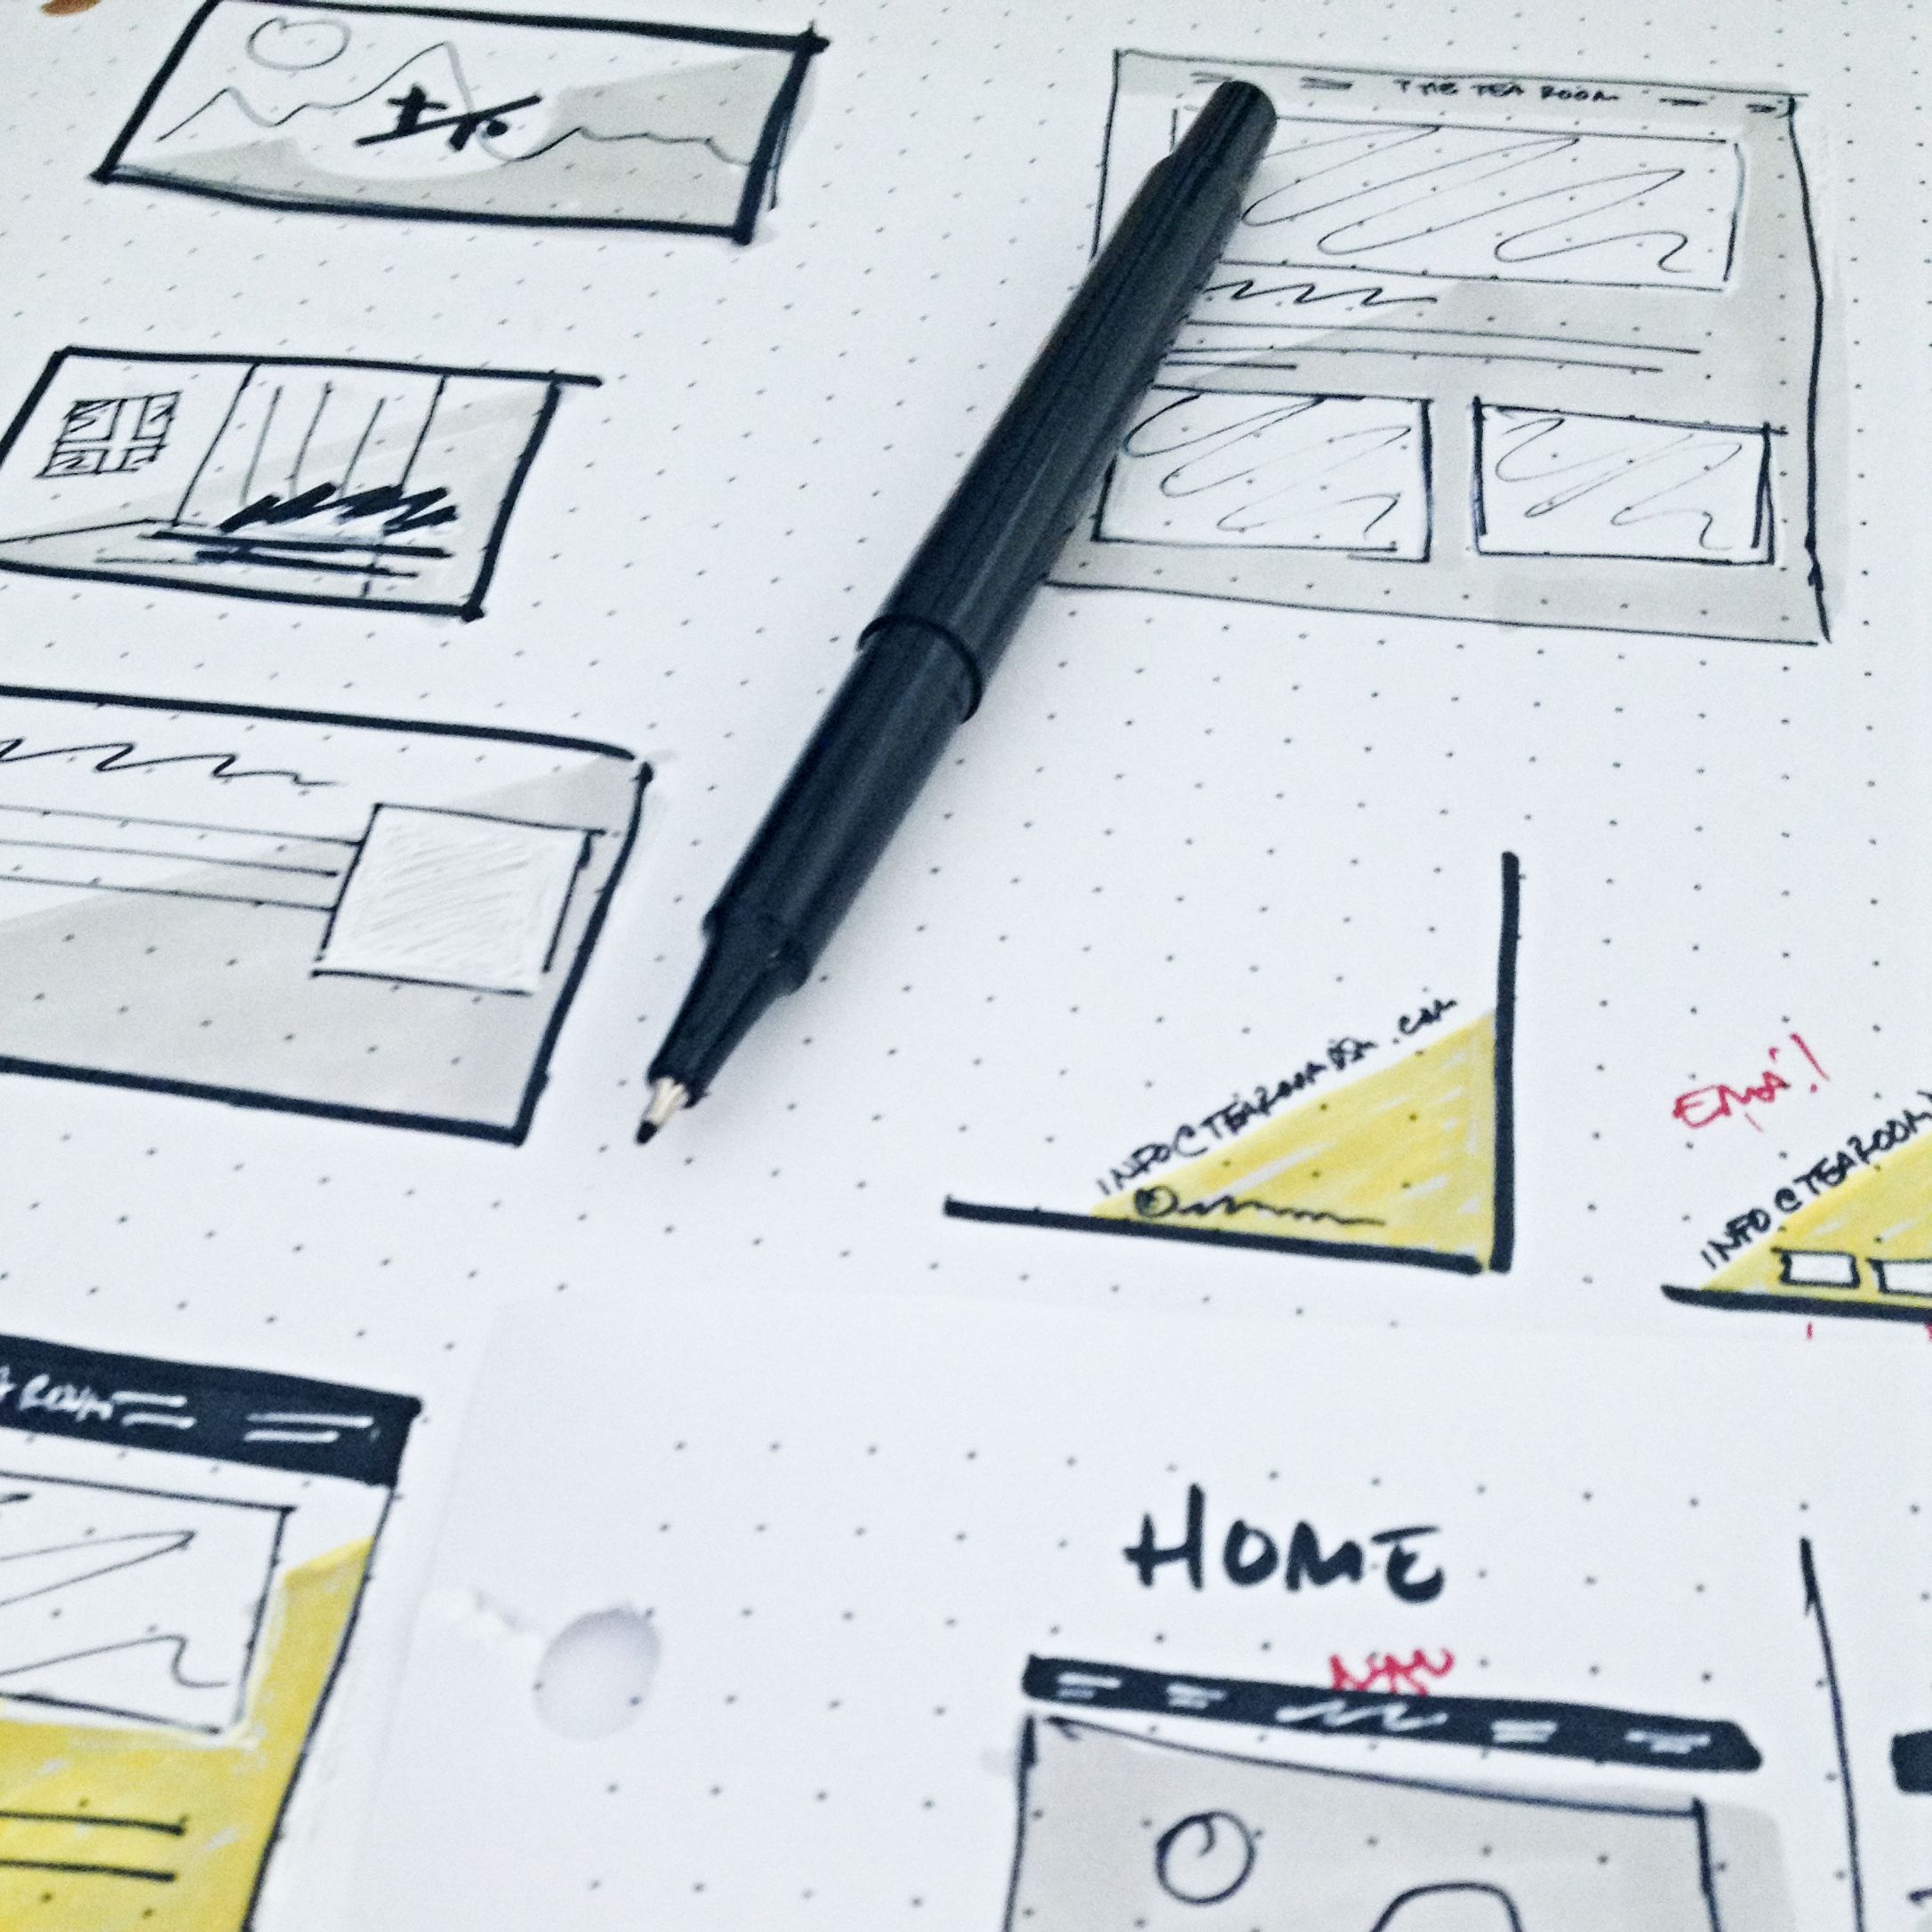 THE TEA ROOM
INFO@TEAROOMDSM.COM
EMAi!
INFO@TEAROOM
ROOM
HOME